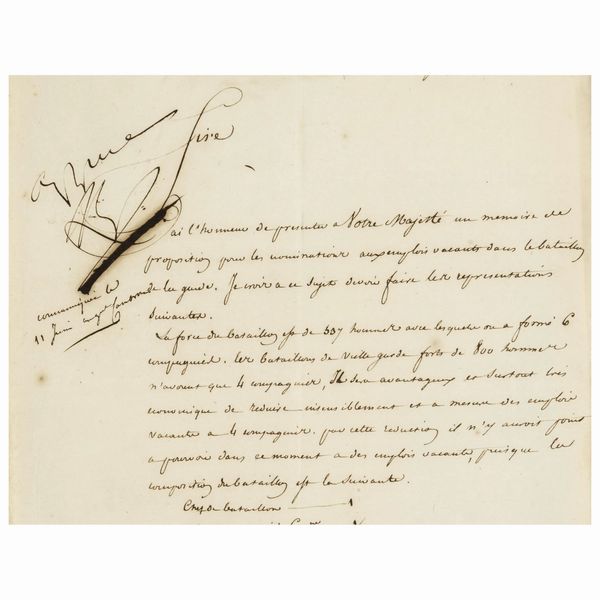 Sire
J'ai l'honneur de presenter a Votre Majesté un memoire de
proposition pour les nominations aux emplois vacants dans le bataillon
de la garde. Je crois a ce sujet devoir faire les representations
suivantes.
La force du bataillon est de 507 hommes avec lesquels on a formé 6
compagnies. les bataillons de vielle garde forts de 800 hommes
n'avoient que 4 compagnies, Il sera avantageux et surtout tres
economique de reduire insensiblement et a mesure des emplois
vacants a 4 compagnies. par cette reduction il n'y auroit point
a pourvoir dans ce moment a des emplois vacants, puisque la
composition du bataillon est la suivante.
Chef de bataillon 1
communiquée le
11 Juin